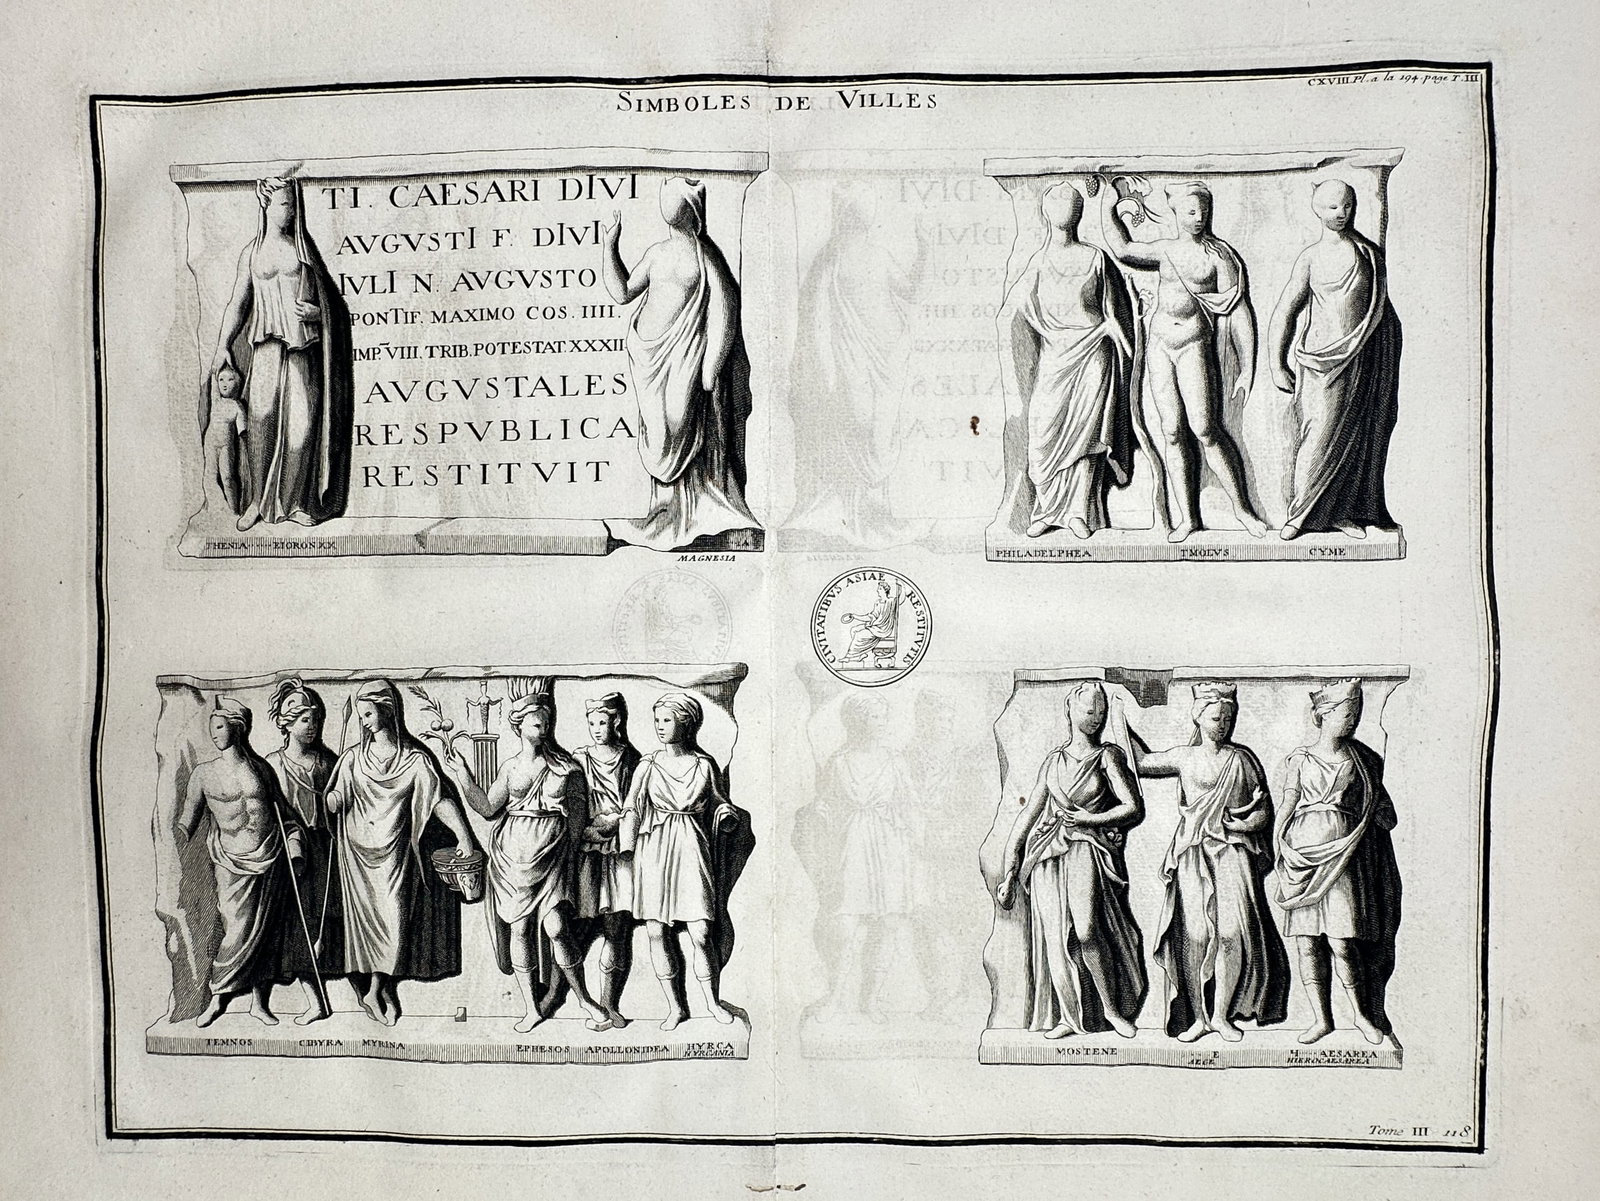 CXVIII. Pl. a la 194. page T. III
SIMBOLES DE VILLES
TI. CAESARI DIVI
AVGVSTI F. DIVI
IVLI N. AVGVSTO
PONTIF. MAXIMO COS. IIII.
IMP. VIII. TRIB. POTESTAT. XXXII
AVGVSTALES
RESPVBLICA
RESTITVIT
THENIA EIORON
IA
MAGNESIA
PHILADELPHEA TMOLVS CYME
CIVITATIBVS ASIAE RESTITVTIS
TEMNOS CIBYRA MYRINA EPHESOS APOLLONIDEA HYRCA
HYRCANIA
MOSTENE E H AESAREA
AEGE HIEROCAESAREA
Tome III 118